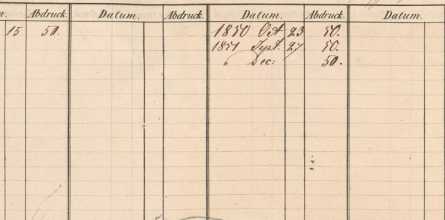 Abdruck. Datum. Abdruck. Datum. Abdruck. Datum.
15 50. 1850 Oct. 23 50.
1851 Sept. 27 50.
Dec: 50.